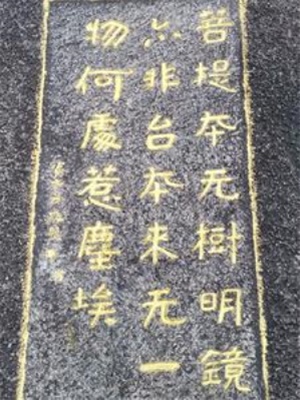 菩提本无樹明鏡
亦非台本来无一
物何處惹塵埃